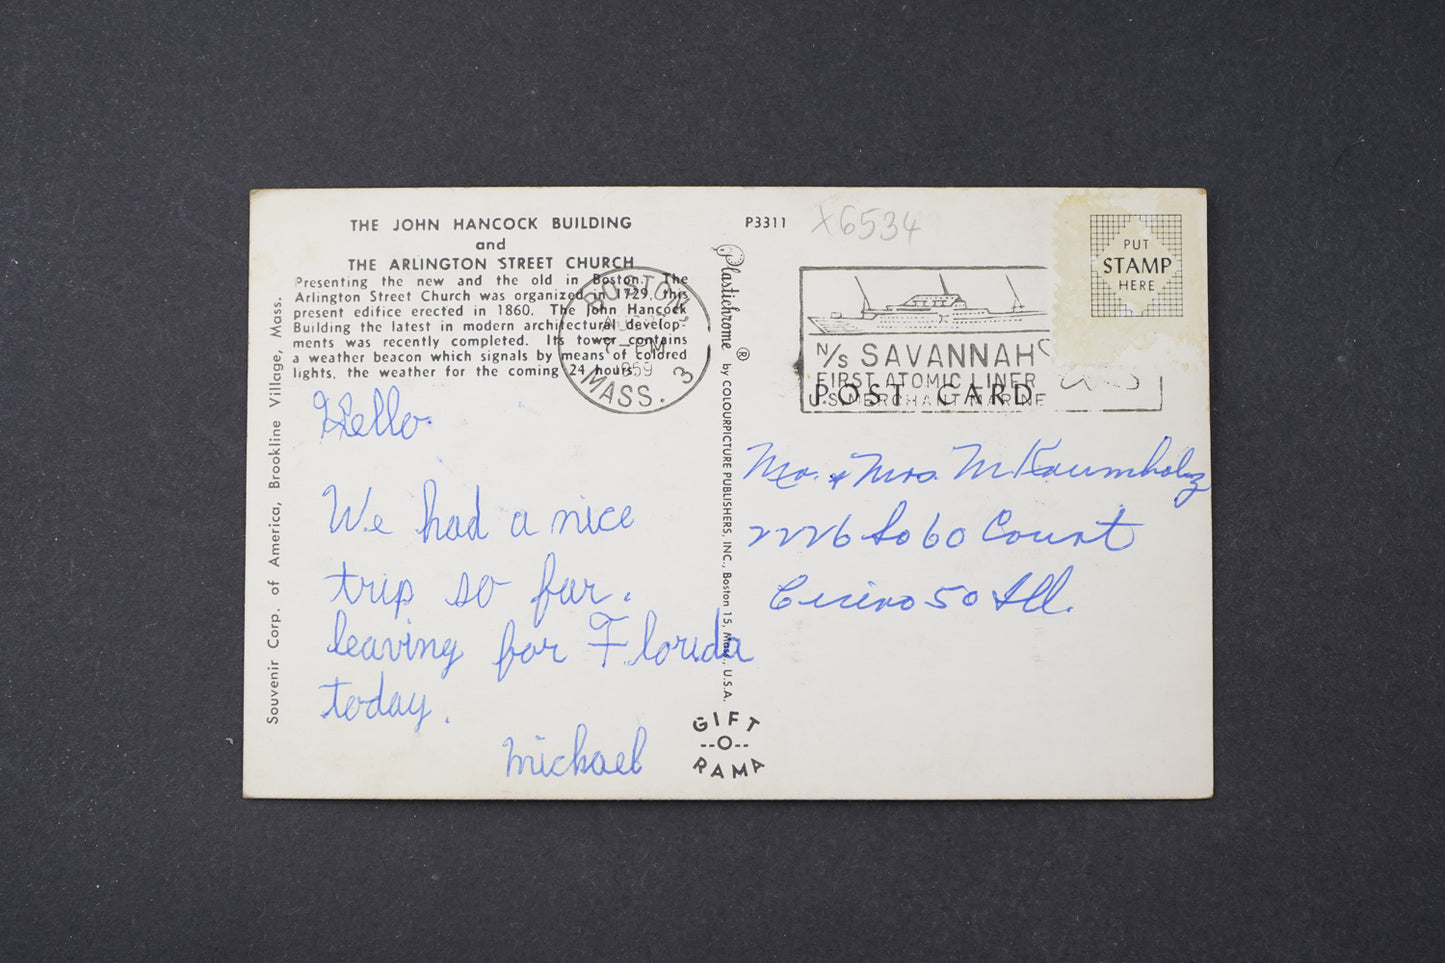 THE JOHN HANCOCK BUILDING
and
THE ARLINGTON STREET CHURCH
Presenting the new and the old in Boston. The
Arlington Street Church was organized in 1729, this
present edifice erected in 1860. The John Hancock
Building the latest in modern architectural develop-
ments was recently completed. Its tower contains
a weather beacon which signals by means of colored
lights, the weather for the coming 24 hours.
Souvenir Corp. of America, Brookline Village, Mass.
Hello
We had a nice
trip so far.
leaving for Florida
today.
Michael
BOSTON,
AUG
7-PM
1959
MASS. 3
P3311
X6534
Plastichrome ® by COLOURPICTURE PUBLISHERS, INC., Boston 15, Mass., U.S.A.
GIFT
--O--
RAMA
PUT
STAMP
HERE
N/S SAVANNAH
FIRST ATOMIC LINER
U.S. MERCHANT MARINE
POST CARD
Mr. & Mrs. M Kaumholz
2226 So 60 Court
Cicero 50 Ill.